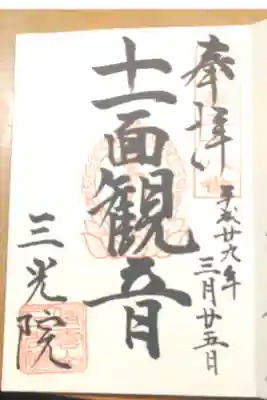 奉拝
平成廿九年
三月廿五日
十一面観音
三光院